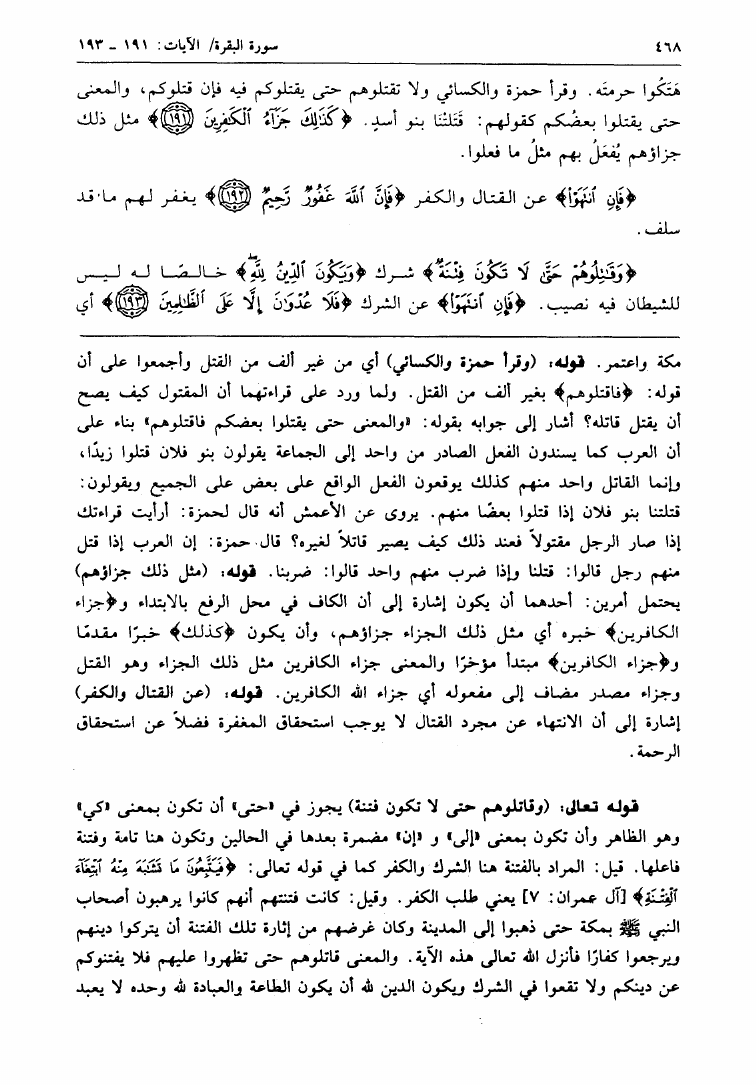 ٤٦٨ سورة البقرة/ الآيات: ١٩١ ـ ١٩٣
هَتَكُوا حرمتَه. وقرأ حمزة والكسائي ولا تقتلوهم حتى يقتلوكم فيه فإن قتلوكم، والمعنى
حتى يقتلوا بعضُكم كقولهم: قَتَلَتْنَا بنو أسدٍ. ﴿كَذَٰلِكَ جَزَآءُ ٱلْكَٰفِرِينَ ﴿١٩١﴾﴾ مثل ذلك
جزاؤهم يُفعَلُ بهم مثلُ ما فعلوا.
﴿فَإِنِ ٱنتَهَوْا۟﴾ عن القتال والكفر ﴿فَإِنَّ ٱللَّهَ غَفُورٌ رَّحِيمٌ ﴿١٩٢﴾﴾ يغفر لهم ما قد
سلف.
﴿وَقَٰتِلُوهُمْ حَتَّىٰ لَا تَكُونَ فِتْنَةٌ﴾ شرك ﴿وَيَكُونَ ٱلدِّينُ لِلَّهِ﴾ خالصًا له ليس
للشيطان فيه نصيب. ﴿فَإِنِ ٱنتَهَوْا۟﴾ عن الشرك ﴿فَلَا عُدْوَٰنَ إِلَّا عَلَى ٱلظَّٰلِمِينَ ﴿١٩٣﴾﴾ أي
مكة واعتمر. قوله: (وقرأ حمزة والكسائي) أي من غير ألف من القتل وأجمعوا على أن
قوله: ﴿فاقتلوهم﴾ بغير ألف من القتل. ولما ورد على قراءتهما أن المقتول كيف يصح
أن يقتل قاتله؟ أشار إلى جوابه بقوله: «والمعنى حتى يقتلوا بعضكم فاقتلوهم» بناء على
أن العرب كما يسندون الفعل الصادر من واحد إلى الجماعة يقولون بنو فلان قتلوا زيدًا،
وإنما القاتل واحد منهم كذلك يوقعون الفعل الواقع على بعض على الجميع ويقولون:
قتلتنا بنو فلان إذا قتلوا بعضًا منهم. يروى عن الأعمش أنه قال لحمزة: أرأيت قراءتك
إذا صار الرجل مقتولاً فعند ذلك كيف يصير قاتلاً لغيره؟ قال حمزة: إن العرب إذا قتل
منهم رجل قالوا: قتلنا وإذا ضرب منهم واحد قالوا: ضربنا. قوله: (مثل ذلك جزاؤهم)
يحتمل أمرين: أحدهما أن يكون إشارة إلى أن الكاف في محل الرفع بالابتداء و﴿جزاء
الكافرين﴾ خبره أي مثل ذلك الجزاء جزاؤهم، وأن يكون ﴿كذلك﴾ خبرًا مقدمًا
و﴿جزاء الكافرين﴾ مبتدأ مؤخرًا والمعنى جزاء الكافرين مثل ذلك الجزاء وهو القتل
وجزاء مصدر مضاف إلى مفعوله أي جزاء الله الكافرين. قوله: (عن القتال والكفر)
إشارة إلى أن الانتهاء عن مجرد القتال لا يوجب استحقاق المغفرة فضلاً عن استحقاق
الرحمة.
قوله تعالى: (وقاتلوهم حتى لا تكون فتنة) يجوز في «حتى» أن تكون بمعنى «كي»
وهو الظاهر وأن تكون بمعنى «إلى» و «إن» مضمرة بعدها في الحالين وتكون هنا تامة وفتنة
فاعلها. قيل: المراد بالفتنة هنا الشرك والكفر كما في قوله تعالى: ﴿فَيَتَّبِعُونَ مَا تَشَٰبَهَ مِنْهُ ٱبْتِغَآءَ
ٱلْفِتْنَةِ﴾ [آل عمران: ٧] يعني طلب الكفر. وقيل: كانت فتنتهم أنهم كانوا يرهبون أصحاب
النبي ﷺ بمكة حتى ذهبوا إلى المدينة وكان غرضهم من إثارة تلك الفتنة أن يتركوا دينهم
ويرجعوا كفارًا فأنزل الله تعالى هذه الآية. والمعنى قاتلوهم حتى تظهروا عليهم فلا يفتنوكم
عن دينكم ولا تقعوا في الشرك ويكون الدين لله أن يكون الطاعة والعبادة لله وحده لا يعبد